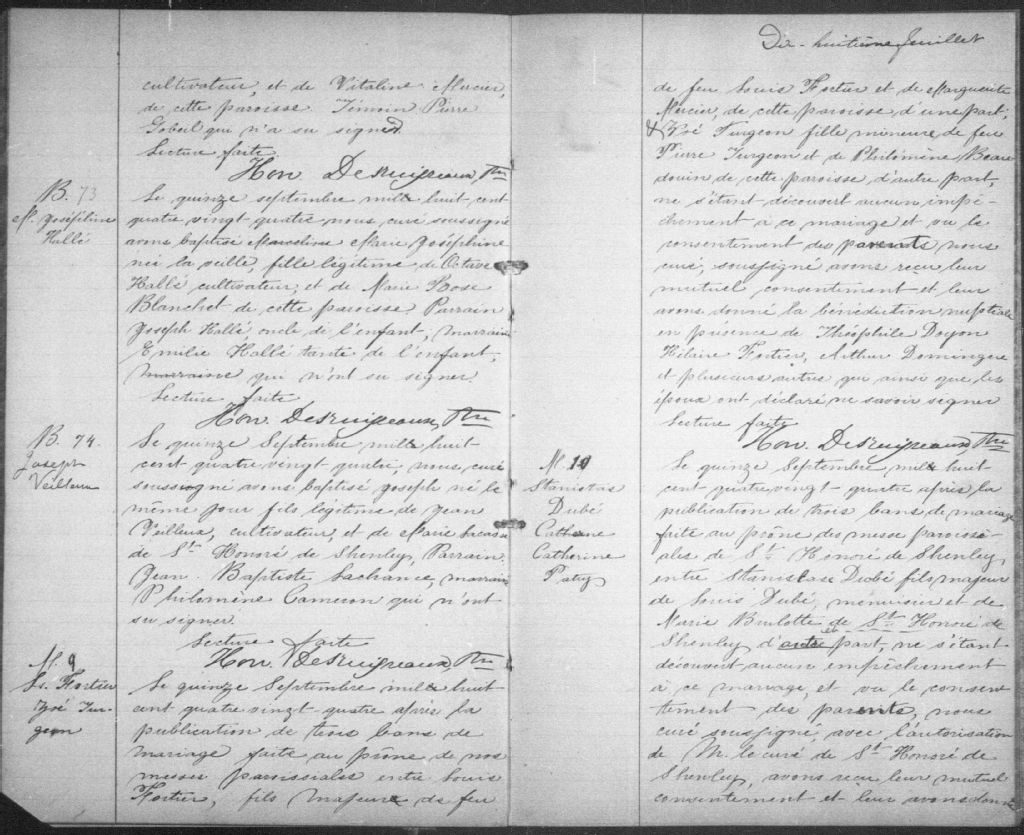 cultivateur, et de Vitaline Mercier,
de cette paroisse Témoin Pierre
Gobeil qui n'a su signer
Lecture faite
Hon. Desruisseaux, Ptre
B. 73
M. Joséphine
Hallé
Le quinze septembre mille huit-cent
quatre vingt quatre nous, curé soussigné
avons baptisé Marceline Marie Joséphine
née la veille, fille légitime de Octave
Hallé cultivateur, et de Marie Rose
Blanchet de cette paroisse Parrain
Joseph Hallé oncle de l'enfant, marraine
Emilie Hallé tante de l'enfant,
marraine qui n'ont su signer.
Lecture faite
Hon. Desruisseaux, Ptre
B. 74.
Joseph
Veilleux
Le quinze Septembre mille huit
cent quatre vingt quatre, nous, curé
soussigné avons baptisé Joseph né le
même jour fils légitime de Jean
Veilleux, cultivateur, et de Marie
de St Honoré de Shenley, Parrain,
Jean-Baptiste Lachance, marraine
Philomène Cameron qui n'ont
su signer.
Lecture faite
Hon. Desruisseaux Ptre
M. 9
Ls. Fortier
Zoé Tur-
geon
Le quinze Septembre mille huit
cent quatre vingt-quatre après la
publication de trois bans de
mariage faite au prône de nos
messes paroissiales entre Louis
Fortier, fils majeur de feu
Dix-huitième feuillet
de feu Louis Fortier et de Marguerite
Mercier, de cette paroisse d'une part,
& Zoé Turgeon fille mineure de feu
Pierre Turgeon et de Philomène Beau
douin de cette paroisse, d'autre part,
ne s'étant découvert aucun empê-
chement à ce mariage et vu le
consentement des parents nous
curé, soussigné avons reçu leur
mutuel consentement et leur
avons donné la bénédiction nuptiale
en présence de Théophile Doyon
Hilaire Fortier, Arthur Domingue
et plusieurs autres qui ainsi que les
époux ont déclaré ne savoir signer
Lecture faite
Hon. Desruisseaux, Ptre
M. 10
Stanislas
Dubé
Cathune
Catherine
Patry
Le quinze Septembre mille huit
cent quatre vingt-quatre après la
publication de trois bans de mariage
faite au prône des messe paroissi-
ales de St Honoré de Shenley,
entre Stanislas Dubé fils majeur
de Louis Dubé, menuisier et de
Marie Brulotte de St Honoré de
Shenley d'autre part, ne s'étant
découvert aucun empêchement
à ce mariage, et vu le consen-
tement des parents, nous
curé soussigné, avec l'autorisation
de M. le curé de St Honoré de
Shenley, avons reçu leur mutuel
consentement et leur avons donné